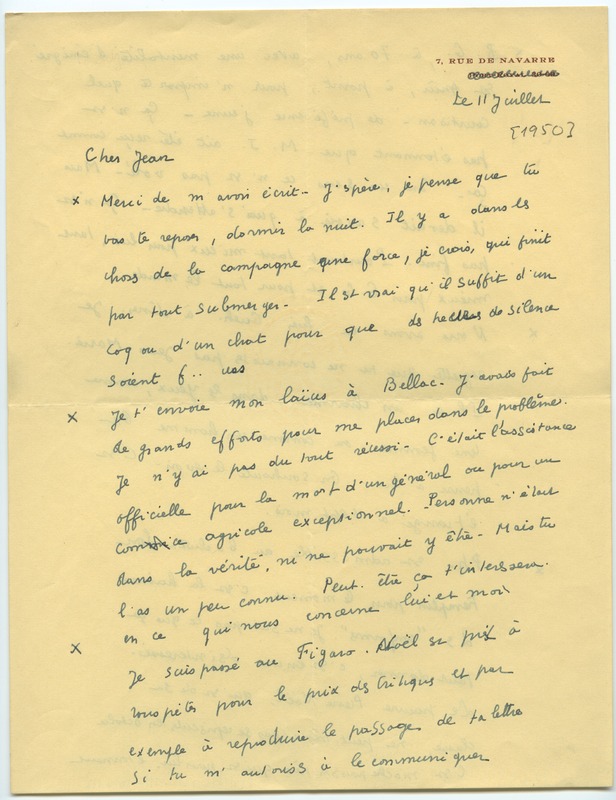 7, RUE DE NAVARRE
Le 11 Juillet
[1950]
Cher Jean
x Merci de m'avoir écrit - J'espère, je pense que tu
vas te reposer, dormir la nuit. Il y a dans les
choses de la campagne une force, je crois, qui finit
par tout submerger - Il est vrai qu'il suffit d'un
coq ou d'un chat pour que des de silence
soient f.. ues
x Je t'envoie mon laïus à Bellac. J'avais fait
de grands efforts pour me placer dans le problème.
Je n'y ai pas du tout réussi - C'était l'assistance
officielle pour la mort d'un général ou pour un
comice agricole exceptionnel. Personne n'était
dans la vérité, ni ne pouvait y être - Mais tu
l'as un peu connu. Peut-être ça t'intéressera.
en ce qui nous concerne lui et moi
x Je suis passé au Figaro. Noël est prêt à
rouspéter pour le prix des Critiques et par
exemple à reproduire le passage de ta lettre
si tu m'autorises à le communiquer